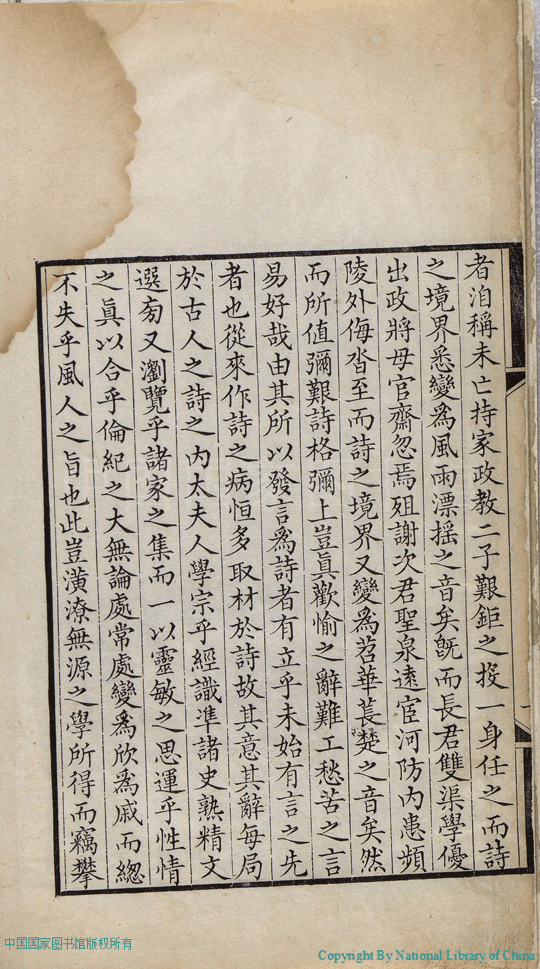 者洎稱未亡持家政教二子艱鉅之投一身任之而詩
之境界悉變爲風雨漂摇之音矣旣而長君雙渠學優
出政將母官齋忽焉殂謝次君聖泉遠宦河防内患頻
陵外侮沓至而詩之境界又變爲苕華萇楚之音矣然
而所值彌艱詩格彌上豈眞歡愉之辭難工愁苦之言
易好哉由其所以發言爲詩者有立乎未始有言之先
者也從來作詩之病恒多取材於詩故其意其辭每局
於古人之詩之内太夫人學宗乎經識準諸史熟精文
選而又瀏覽乎諸家之集而一以靈敏之思運乎性情
之眞以合乎倫紀之大無論處常處變爲欣爲戚而緫
不失乎風人之旨也此豈潢潦無源之學所得而竊攀
中国国家图书馆版权所有
Copyright By National Library of China